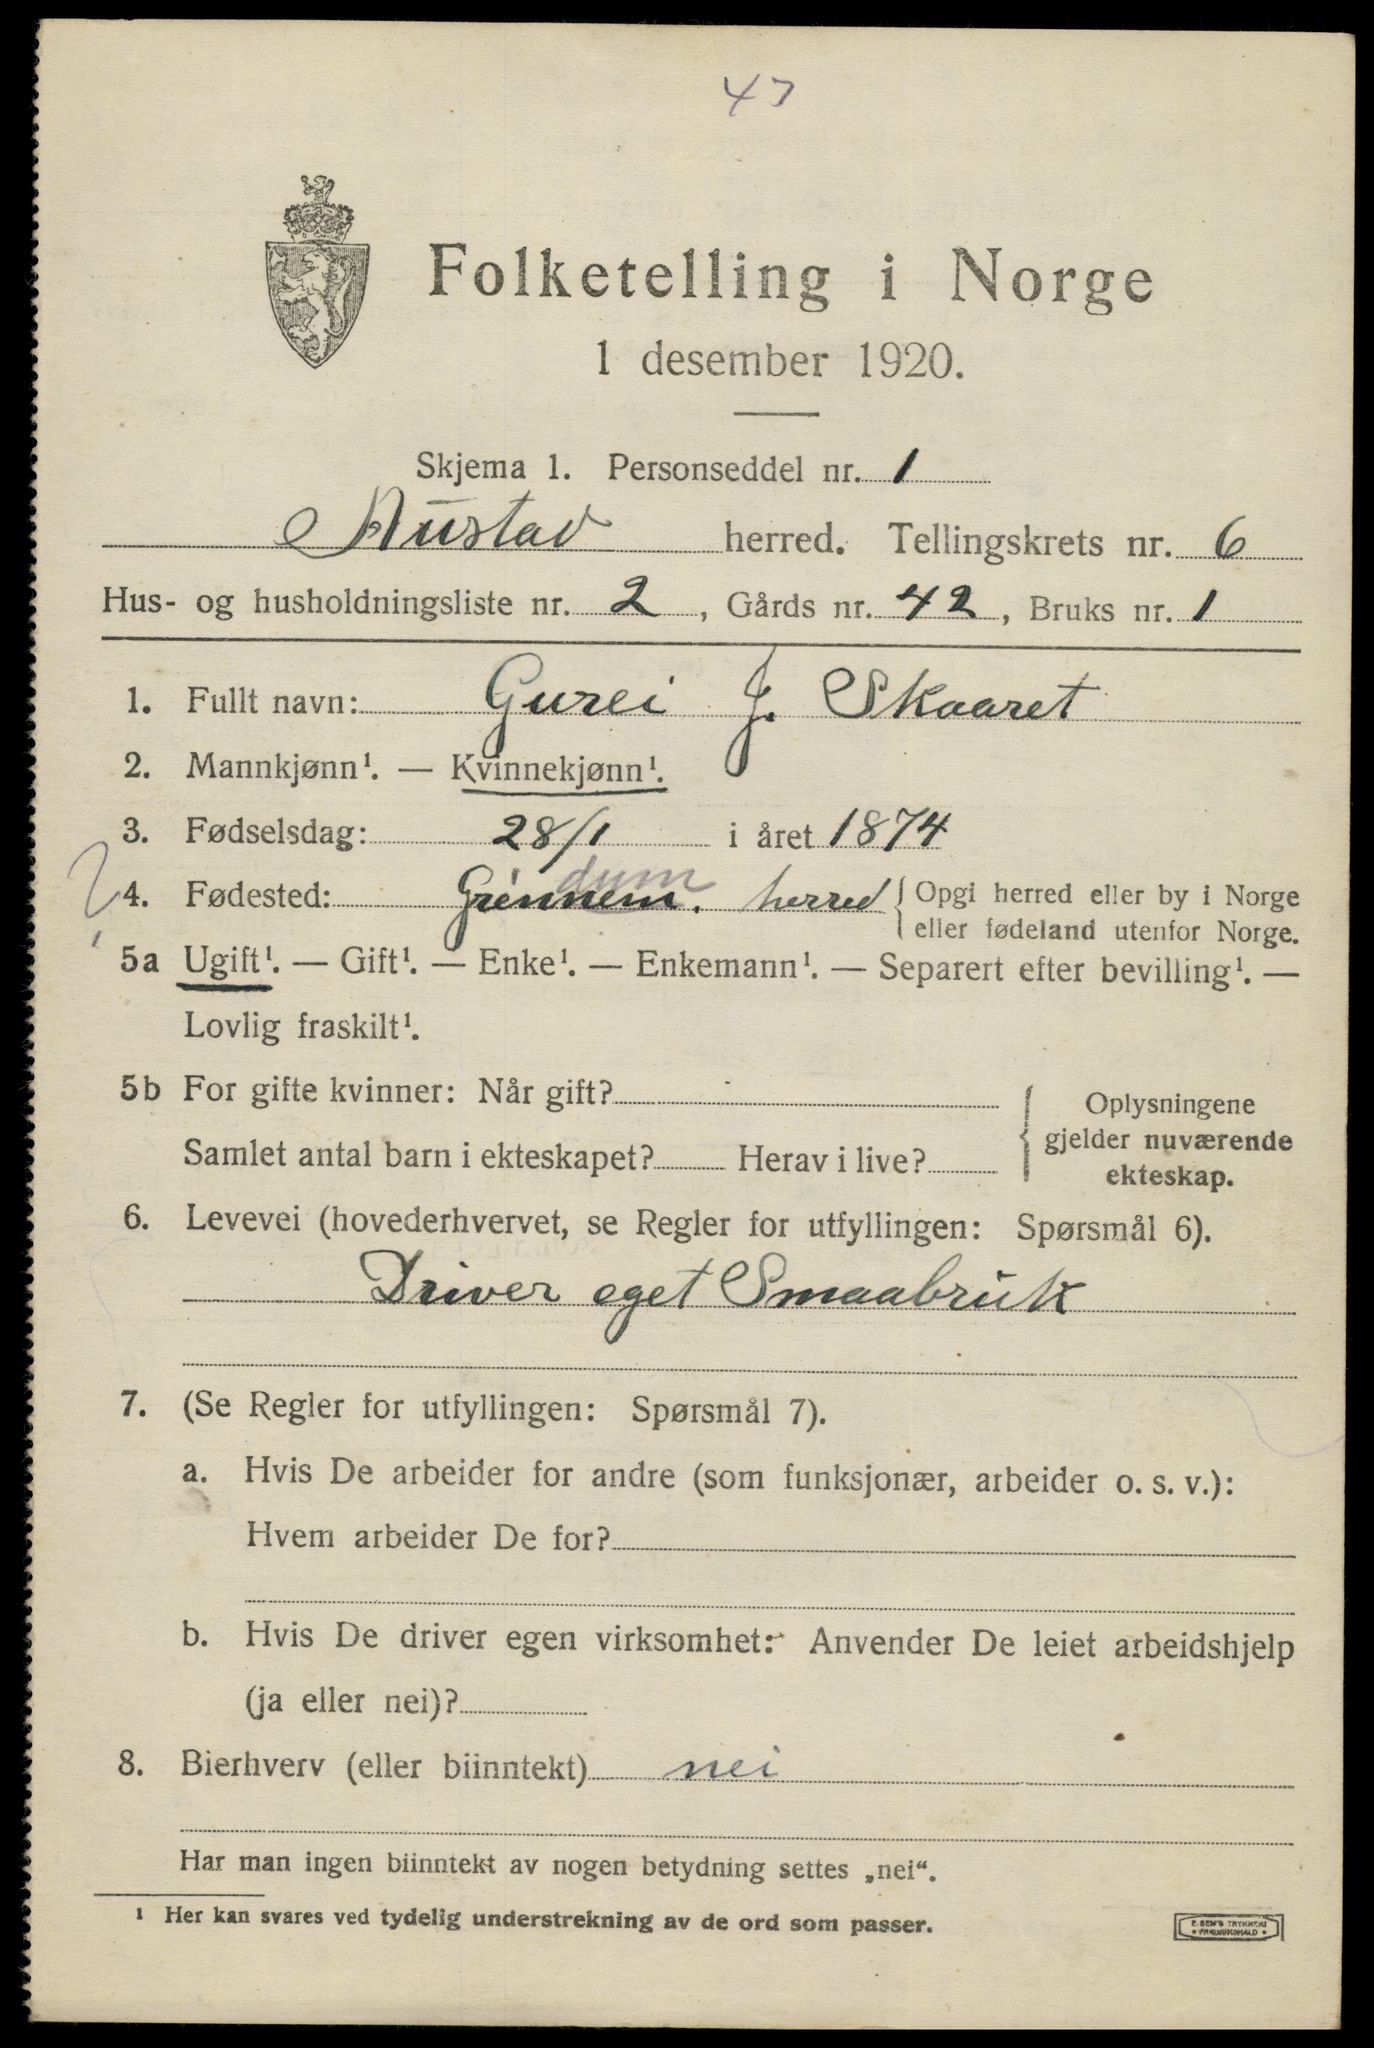 47
Folketelling i Norge
1 desember 1920.
Skjema 1. Personseddel nr. 1
Austad herred. Tellingskrets nr. 6
Hus- og husholdningsliste nr. 2, Gårds nr. 42, Bruks nr. 1
1. Fullt navn: Gurei J. Skaaret
2. Mannkjønn¹. — Kvinnekjønn¹.
3. Fødselsdag: 28/1 i året 1874
dum
? 4. Fødested: Grennem. herred { Opgi herred eller by i Norge
eller fødeland utenfor Norge.
5a Ugift¹. — Gift¹. — Enke¹. — Enkemann¹. — Separert efter bevilling¹. —
Lovlig fraskilt¹.
5b For gifte kvinner: Når gift?
Samlet antal barn i ekteskapet? Herav i live?
{ Oplysningene
gjelder nuværende
ekteskap.
6. Levevei (hovederhvervet, se Regler for utfyllingen: Spørsmål 6).
Driver eget Smaabruk
7. (Se Regler for utfyllingen: Spørsmål 7).
a. Hvis De arbeider for andre (som funksjonær, arbeider o. s. v.):
Hvem arbeider De for?
b. Hvis De driver egen virksomhet: Anvender De leiet arbeidshjelp
(ja eller nei)?
8. Bierhverv (eller biinntekt) nei
Har man ingen biinntekt av nogen betydning settes „nei“.
¹ Her kan svares ved tydelig understrekning av de ord som passer.
E. SEM'S TRYKKERI
* FREDRIKSHALD *